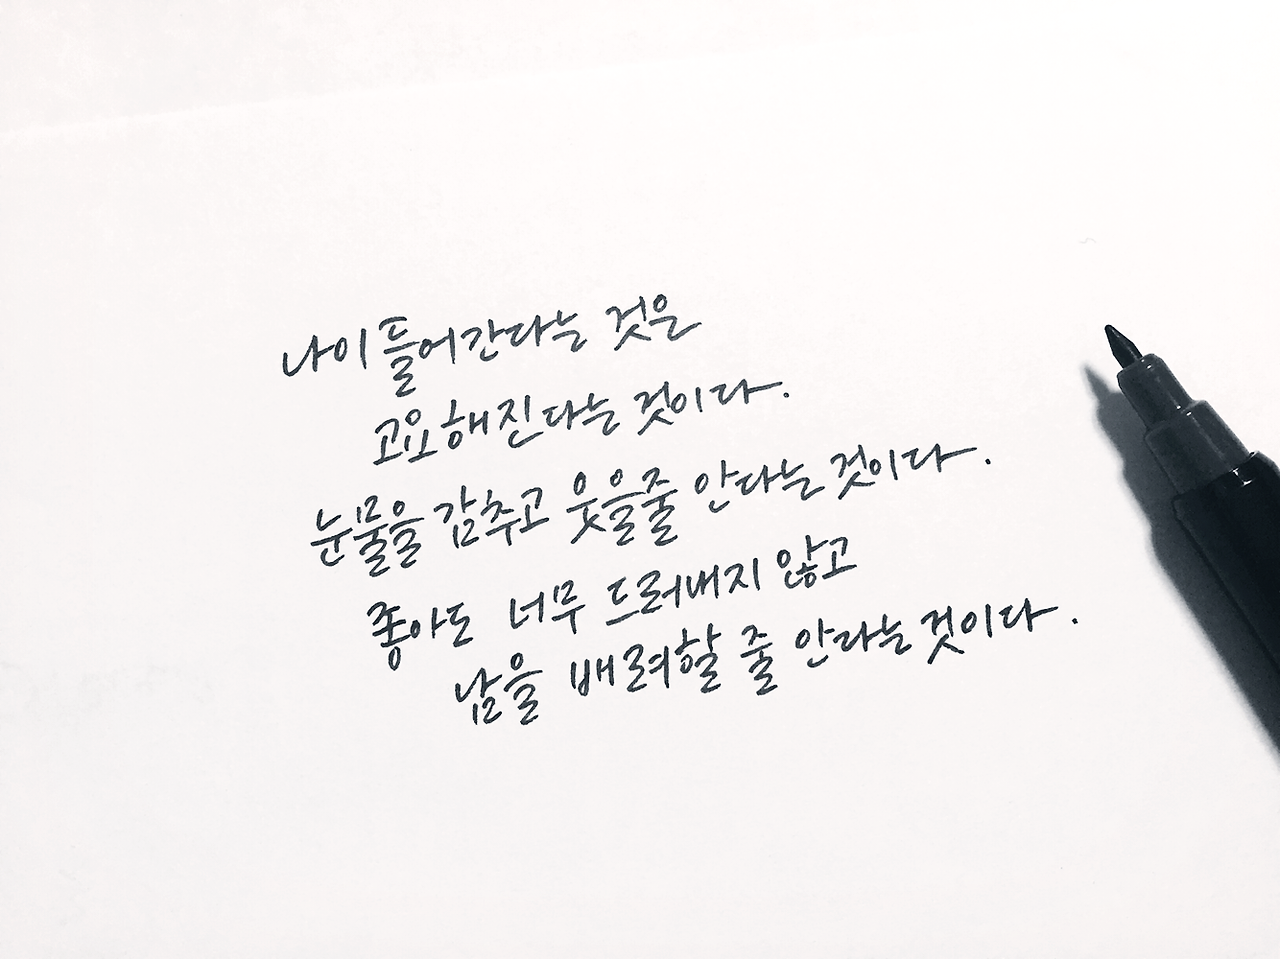 나이들어간다는 것은
고요해진다는 것이다.
눈물을 감추고 웃을줄 안다는 것이다.
좋아도 너무 드러내지 않고
남을 배려할 줄 안다는 것이다.